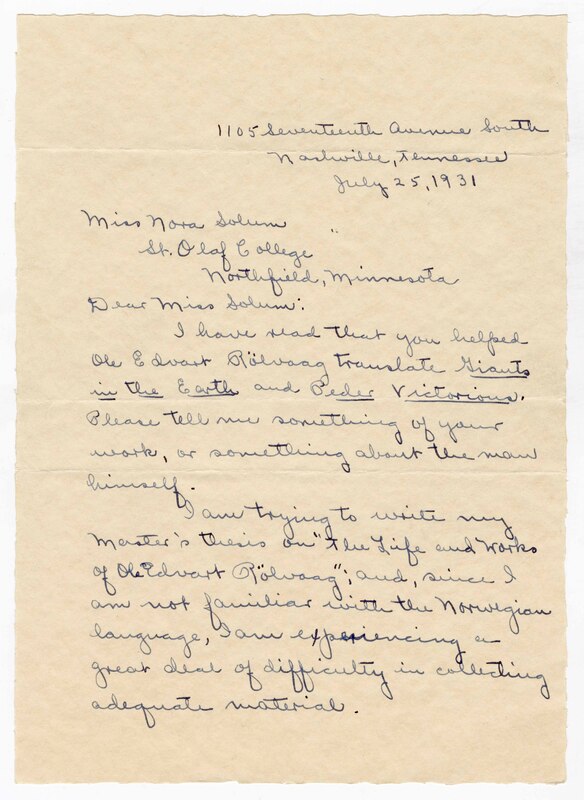 1105 Seventeenth Avenue South
Nashville, Tennessee
July 25, 1931
Miss Nora Solum
St. Olaf College
Northfield, Minnesota
Dear Miss Solum:
I have read that you helped
Ole Edvart Rölvaag translate Giants
in the Earth and Peder Victorious.
Please tell me something of your
work, or something about the man
himself.
I am trying to write my
Master's thesis on "The Life and Works
of Ole Edvart Rölvaag"; and, since I
am not familiar with the Norwegian
language, I am experiencing a
great deal of difficulty in collecting
adequate material.